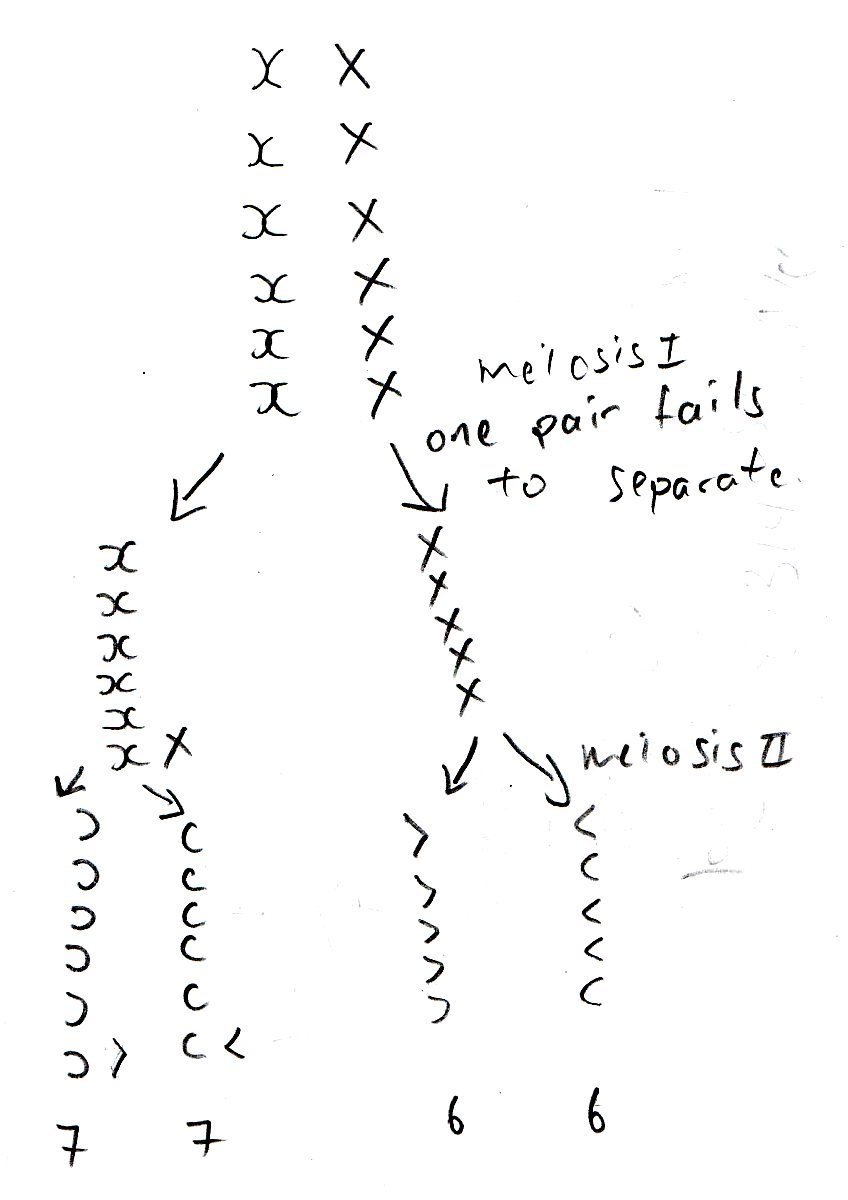 meiosis I
one pair fails
to separate.
meiosis II
7 7 6 6